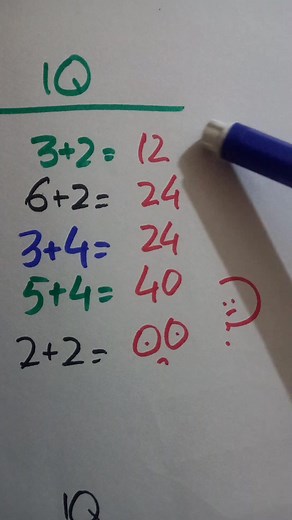 IQ
3+2= 12
6+2= 24
3+4= 24
5+4= 40
2+2= 00
IQ